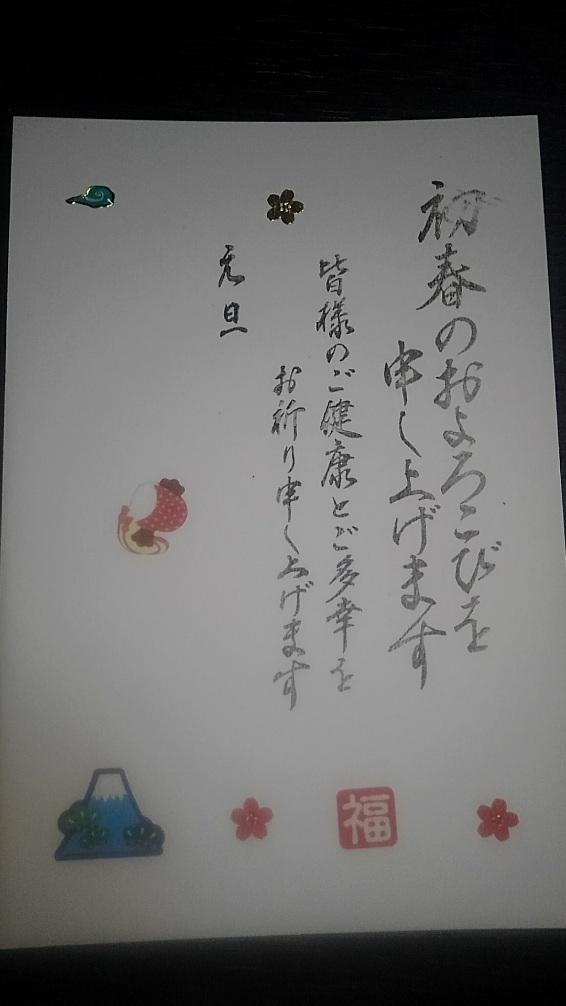 初春のおよろこびを
申し上げます
皆様のご健康とご多幸を
お祈り申し上げます
元旦
福